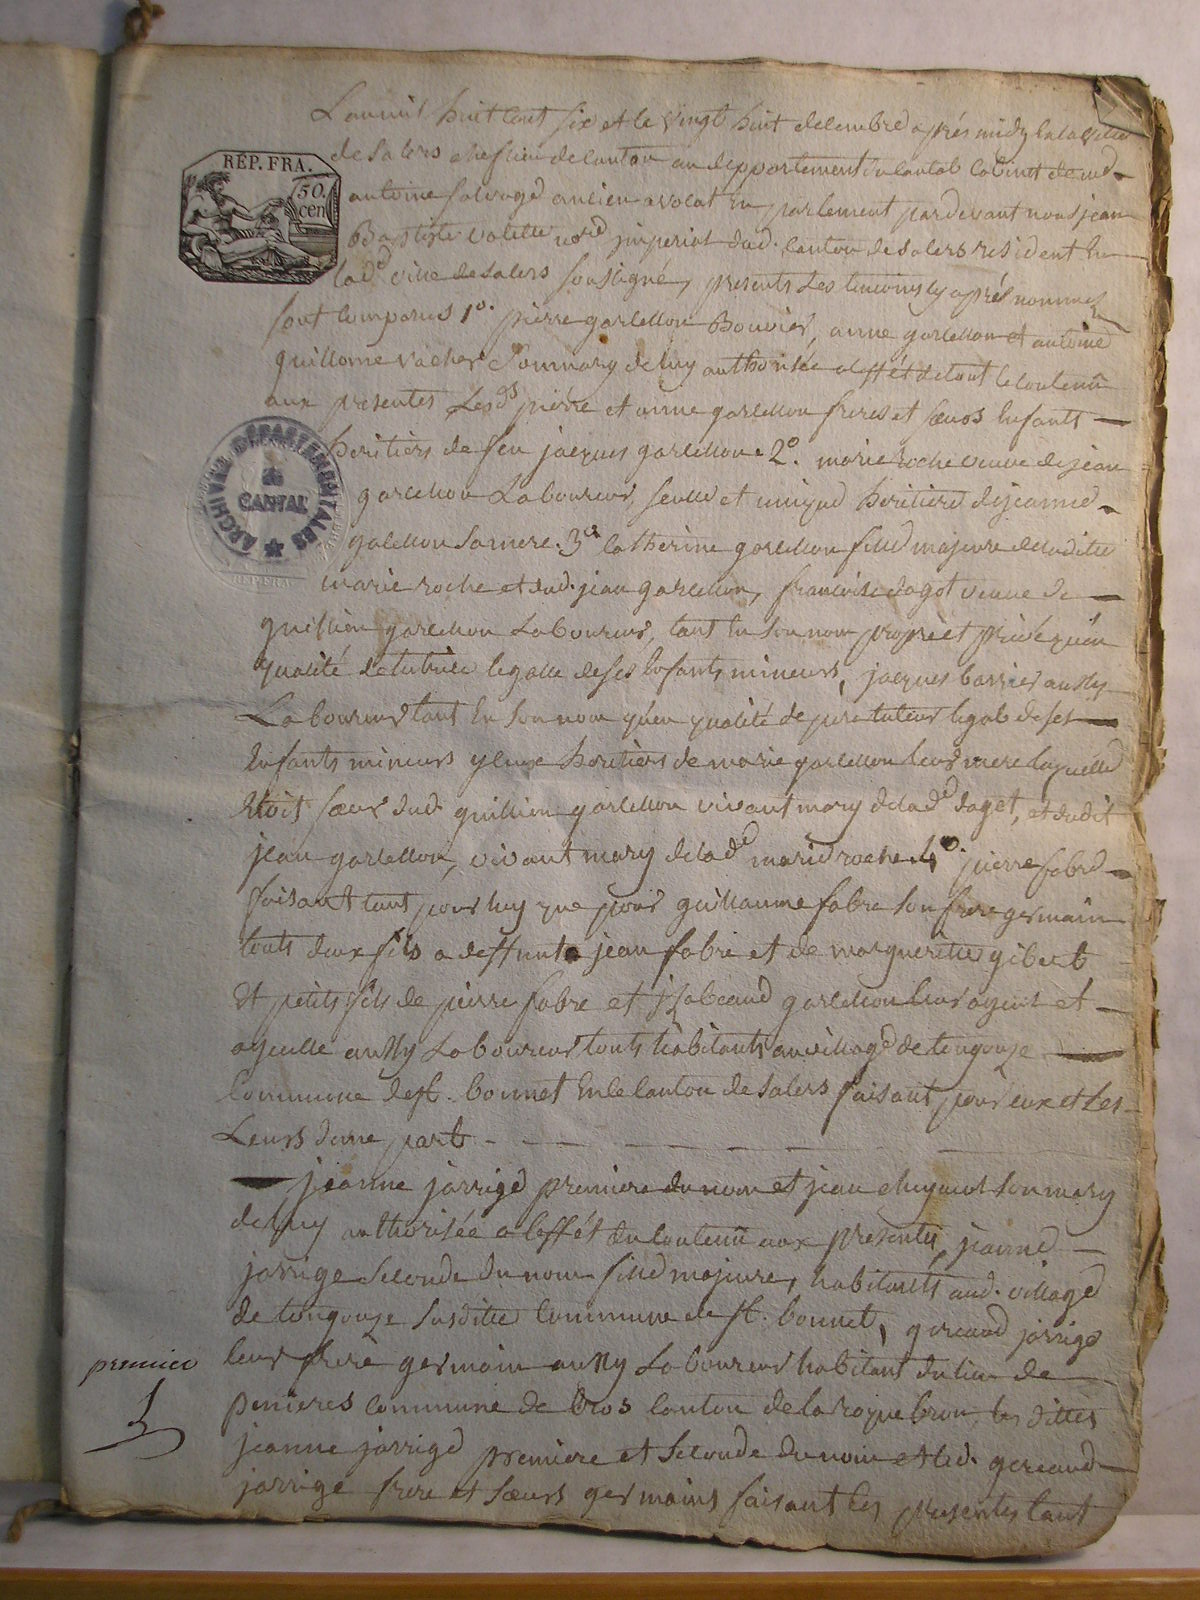 L'an mil huit cent six et le vingt huit decembre après midy la la ville
REP. FRA.
50. cen
de Salers chef lieu de canton au deppartement du cantal cabinet de me
antoine salvage ancien avocat en parlement pardevant nous jean
Baptiste vatelle nore jmperial dud. canton de salers resident en
lade ville de salers soussigné, presents les temoins cy après nommés
sont comparus 1o. pierre garcellon Bouvier, anne garcellon et antoine
guillaume vacher son mary de luy authorisée a leffét de tout le contenû
aux presentes Lesds pierre et anne garcellon freres et sœurs Enfants
heritiers de feu jacques garcellon 2o. marie roche veuve de jean
garcellon Laboureur, seulle et unique heritiere de jeanne
galcellon sa mere. 3o catherine garcellon fille majeure de ladite
marie roche et dud. jean garcellon, francoise dagot veuve de
guillien garcellon Laboureur, tant En son nom propre et privé qu'en
qualité de tutrice legalle de ses Enfants mineurs, jacques barrier aussy
Laboureur tant En son nom qu'en qualité de pere tuteur legal de ses
Enfants mineurs yceux heritiers de marie garcellon leur mere laquelle
Etoit sœur dud. guillien garcellon vivant mary de lade dagot, et dudit
jean garcellon, vivant mary de lade marie roche 4o. pierre fabre
faisant tant pour luy que pour guillaume fabre son frere germain
touts deux fils a deffunt jean fabre et de marguerite gibert
Et petits fils de pierre fabre et garcellon leur ayeul et
ayeulle aussy Laboureur touts habitants au village de tougouze
Commune de st. bonnet En le canton de Salers faisant pour eux et Les
Leurs dune part
jeanne jarrige premiere du nom et jean son mary
de luy authorisée a leffét du contenû aux presentes, jeanne
jarrige seconde du nom fille majeure, habitants aud. village
de tougouze susditte Commune de st. bonnet, geraud jarrige
premier
leur frere germain aussy Laboureur habitant du lieu de
penieres commune de Cros canton de laroquebrou, les dittes
jeanne jarrige premiere et seconde du nom et led. geraud
jarrige frere et sœurs germains faisant les presentes tant
ARCHIVES DÉPARTEMENTALES
du
CANTAL
REP. FRA.